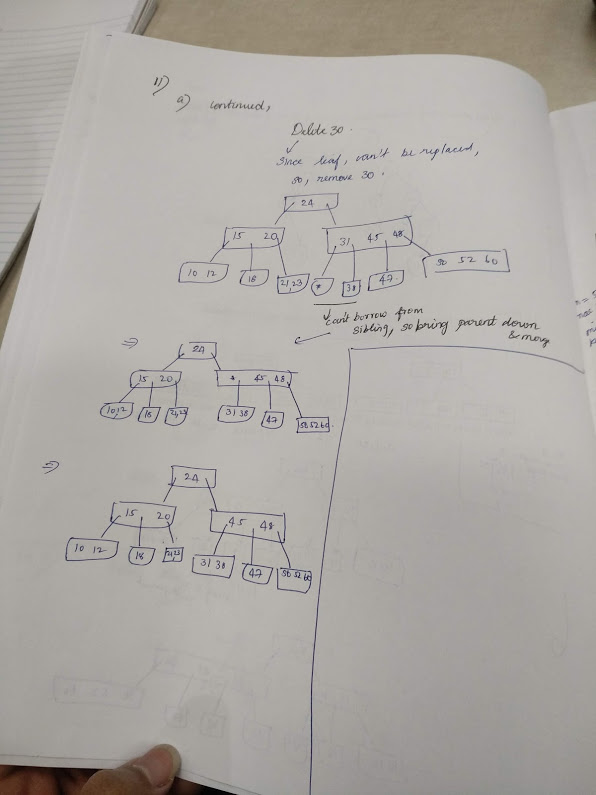 11)
a) continued,
Delete 30.
Since leaf, can't be replaced,
so, remove 30.
24
15 20 31 45 48
10 12 18 21,23 * 38 47 50 52 60
can't borrow from
sibling, so bring parent down
& merge
⇒ 24
15 20 * 45 48
10,12 18 21,23 31 38 47 50 52 60
⇒ 24
15 20 45 48
10 12 18 21,23 31 38 47 50 52 60